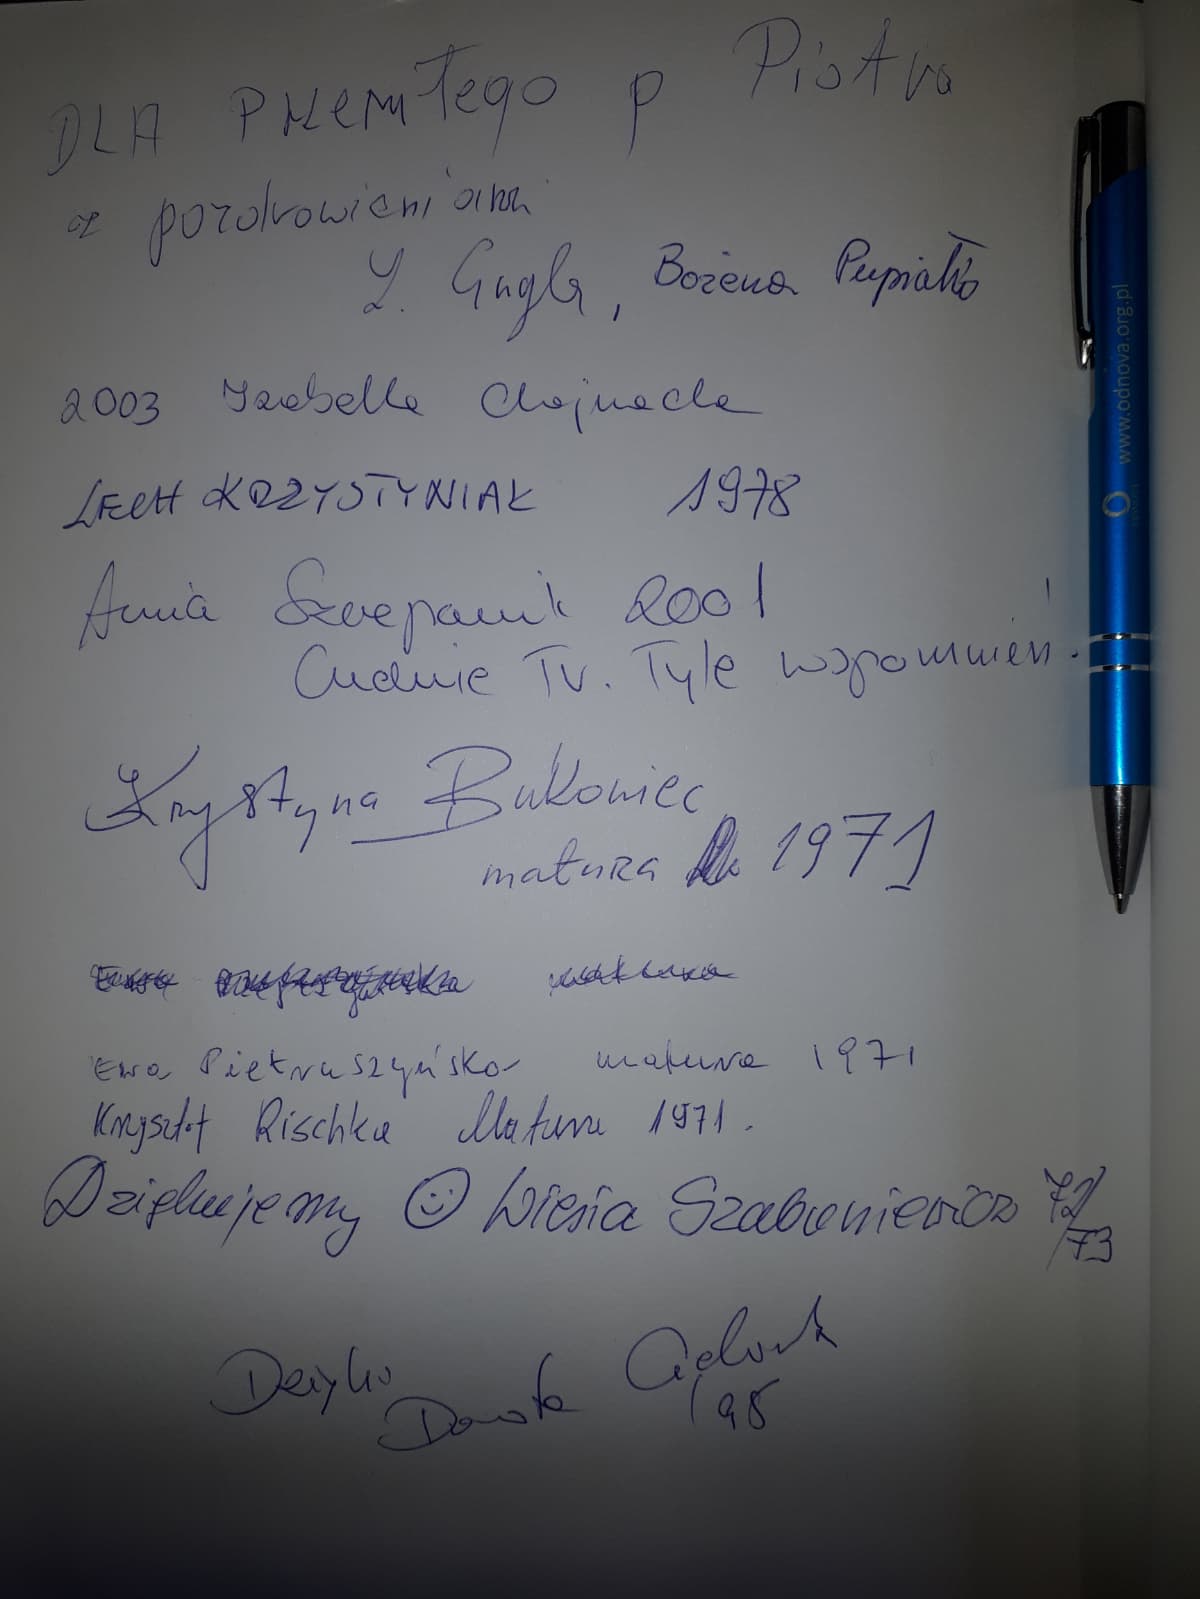 DLA przemiłego p Piotra
z pozdrowieniami
Bożena Pupiałło
2003 Izabella Chojnacka
LECH KRZYSTYNIAK 1978
Ania Szczepanik 2001
Cudnie Tu. Tyle wspomnień!
Krystyna Bukowiec
matura 1971
Ewa Pietruszyńska matura 1971
Krzysztof Rischka Matura 1971.
Dziękujemy Wiesia Szabuniewicz 72/73
Dorota
www.odnova.org.pl